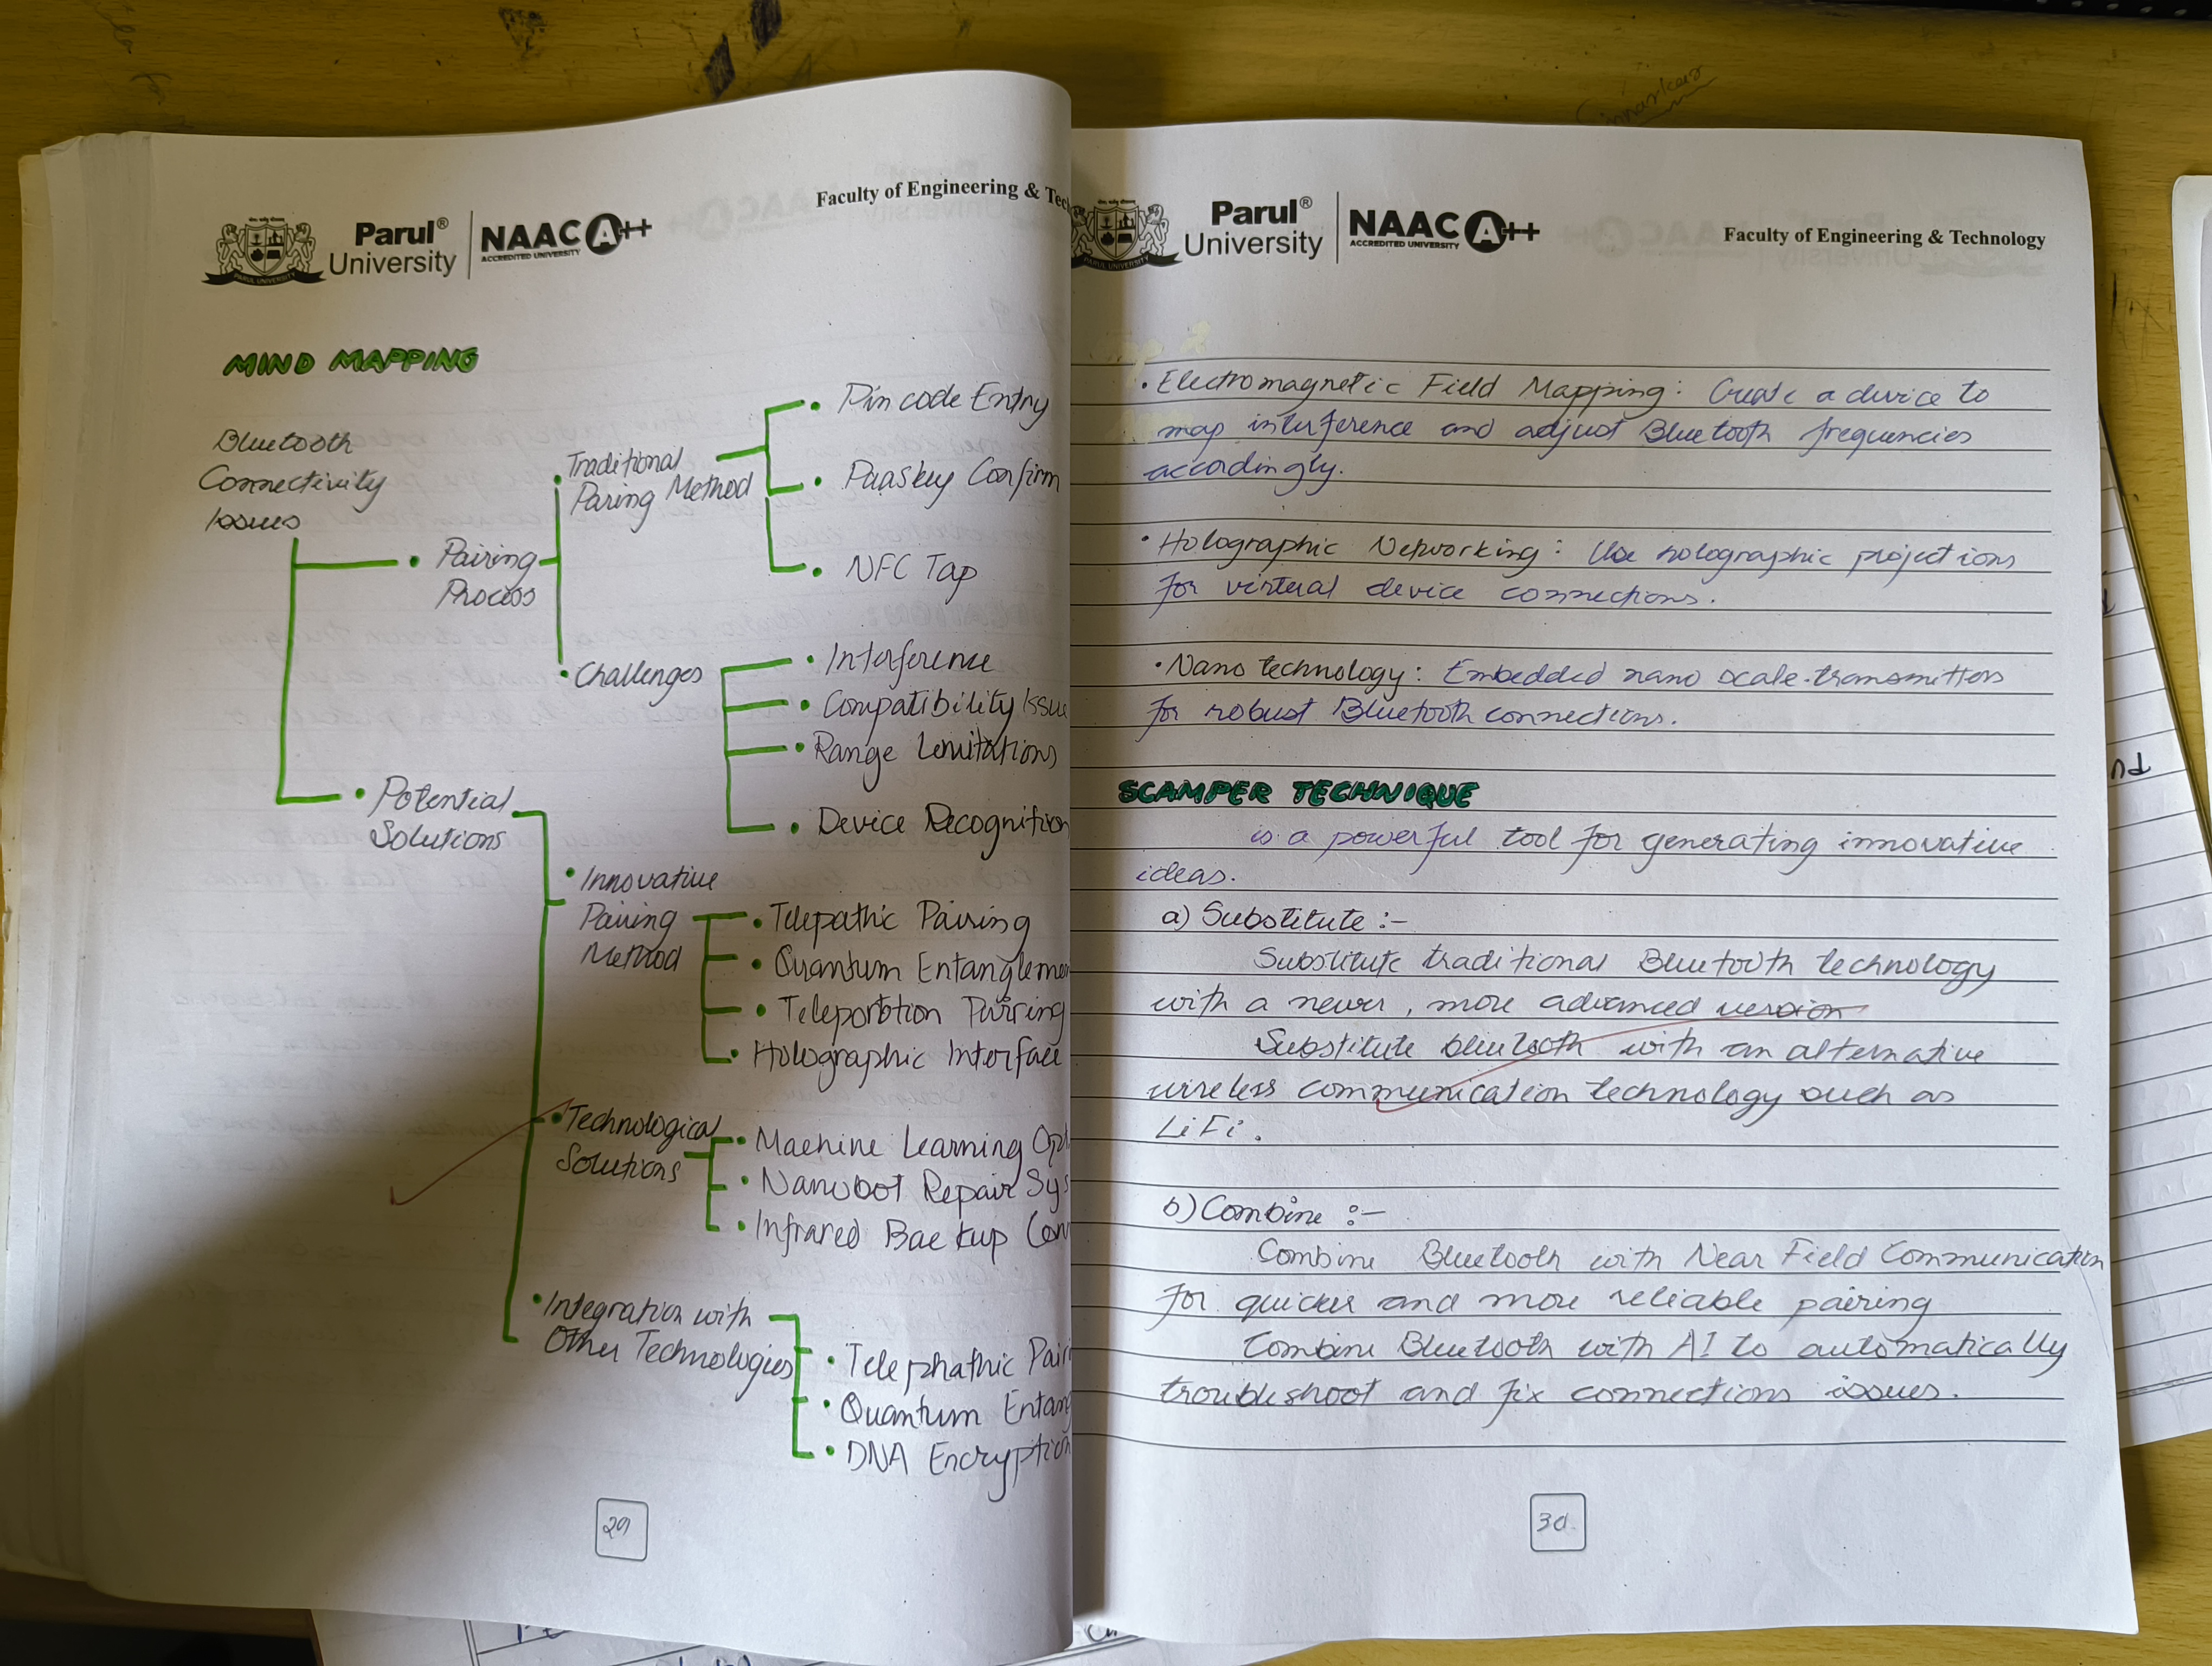 Parul® University
NAAC A++
ACCREDITED UNIVERSITY
PARUL UNIVERSITY
Faculty of Engineering & Tec
MIND MAPPING
Bluetooth
Connectivity
Issues
• Pairing
Process
• Traditional
Paring Method
• Pin code Entry
• Paaskey Confirm
• NFC Tap
• Challenges
• Interference
• Compatibility Issu
• Range Limitations
• Device Recognition
• Potential
Solutions
• Innovative
Pairing
Method
• Telepathic Pairing
• Quantum Entanglemen
• Teleportation Pairing
• Holographic Interface
• Technological
Solutions
• Machine Learning Opt
• Nanobot Repair Sys
• Infrared Backup Con
• Integration with
Other Technologies
• Telephathic Pairi
• Quantum Entang
• DNA Encryption
29
Parul® University
NAAC A++
ACCREDITED UNIVERSITY
PARUL UNIVERSITY
Faculty of Engineering & Technology
• Electromagnetic Field Mapping: Create a device to
map interference and adjust Bluetooth frequencies
accordingly.
• Holographic Networking: Use holographic projections
for virtual device connections.
• Nano technology: Embedded nano scale-transmitters
for robust Bluetooth connections.
SCAMPER TECHNIQUE
is a powerful tool for generating innovative
ideas.
a) Substitute :-
Substitute traditional Bluetooth technology
with a newer, more advanced version
Substitute bluetooth with an alternative
wireless communication technology such as
LiFi.
b) Combine :-
Combine Bluetooth with Near Field Communication
for quicker and more reliable pairing
Combine Bluetooth with AI to automatically
troubleshoot and fix connections issues.
30.